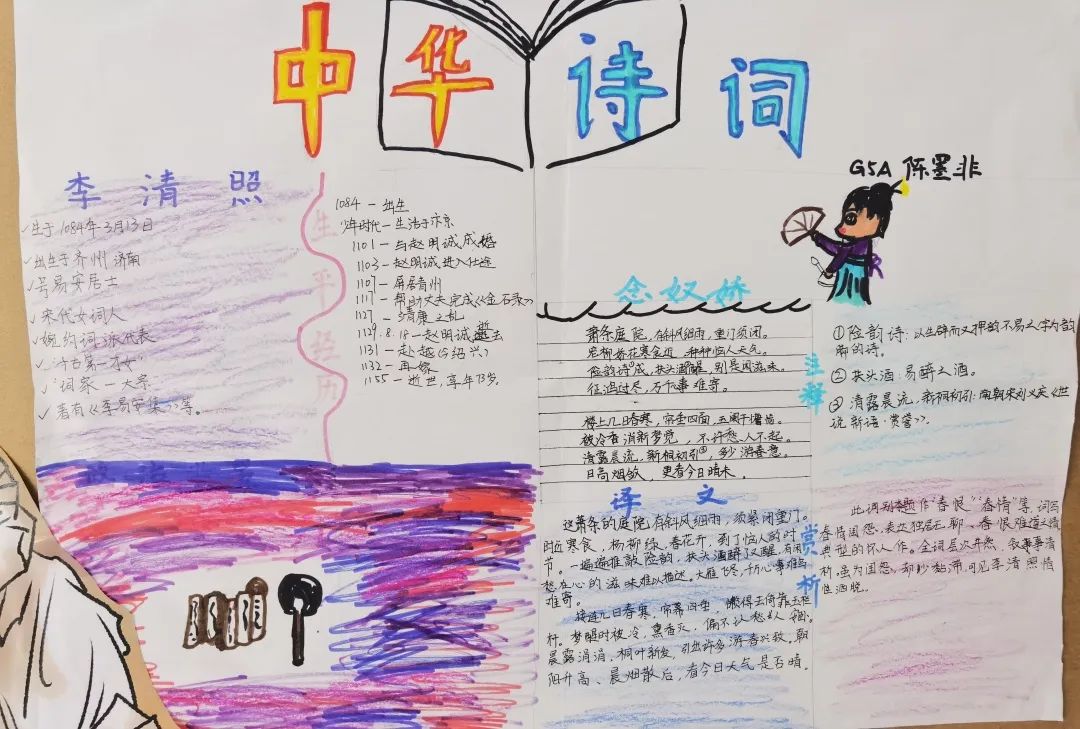 中华诗词
G5A 陈墨非
李清照
✓生于1084年3月13日
✓出生于齐州 济南
✓号易安居士
✓宋代女词人
✓婉约词派代表
✓"千古第一才女"
✓词家一大宗
✓著有《李易安集》等。
生平经历
1084 — 出生
少年时代 — 生活于汴京
1101 — 与赵明诚成婚
1103 — 赵明诚进入仕途
1107 — 屏居青州
1117 — 帮助丈夫完成《金石录》
1127 — 靖康之乱
1129.8.18 — 赵明诚逝去
1131 — 赴越(绍兴)
1132 — 再嫁
1155 — 逝世,享年73岁。
念奴娇
萧条庭院,有斜风细雨,重门须闭。
宠柳娇花寒食近,种种恼人天气。
险韵诗成,扶头酒醒,别是闲滋味。
征鸿过尽,万千心事难寄。
楼上几日春寒,帘垂四面,玉阑干慵倚。
被冷香消新梦觉,不许愁人不起。
清露晨流,新桐初引③,多少游春意。
日高烟敛,更看今日晴未。
译文
这萧条的庭院,有斜风细雨,须紧闭重门。
时近寒食,杨柳绿,春花开,到了恼人的时
节。一遍遍推敲险韵,扶头酒醉又醒,有闲
愁在心的滋味难以描述。大雁飞尽,千万心事难
难寄。
接连几日春寒,帘幕四垂,懒得去倚靠玉栏
杆。梦醒时被冷,熏香灭,偏不让愁人
晨露涓涓,桐叶新发,引出许多游春兴致,朝
阳升高、晨烟散后,看今日天气是否晴。
注释
①险韵诗:以生僻而又押韵不易之字为韵
脚的诗。
②扶头酒:易醉之酒。
③清露晨流,新桐初引:南朝宋刘义庆《世
说新语·赏誉》。
赏析
此词别本题作"春恨""春情"等,词写
春情闺怨,表达独居无聊、春恨难遣之情
典型的怀人作。全词层次井然,叙事事清
析。虽为闺怨,却妙黏滞,可见李清照情
性洒脱。